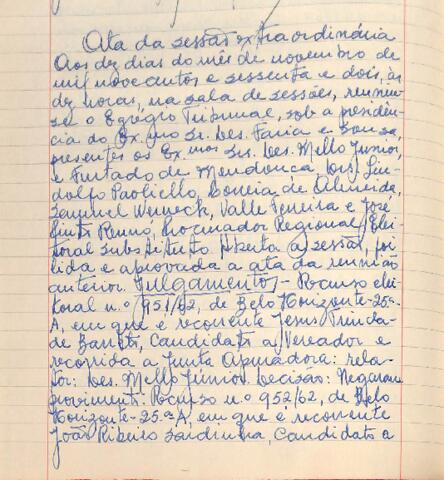 Ata da sessão extraordinária
Aos dez dias do mês de novembro de
mil novecentos e sessenta e dois, às
dez horas, na sala de sessões, reuniu-
se o Egrégio Tribunal, sob a presidên-
cia do Exmo Sr. Des. Faria e Sousa,
presentes os Exmos Srs. Des. Mello Júnior,
e Furtado de Mendonça, Drs. Lin-
dolfo Paoliello, Correia de Almeida,
Samuel Werneck, Valle Ferreira e José
Pinto Renno, Procurador Regional Elei-
toral Substituto. Aberta a sessão, foi
lida e aprovada a ata da reunião
anterior. Julgamentos - Recurso elei-
toral n.º 951/62, de Belo Horizonte - 25ª-
A, em que é recorrente Jesus Trinda-
de Barreto, Candidato a Vereador e
recorrida a Junta Apuradora: rela-
tor: Des. Mello Júnior. Decisão: Negaram
provimento. Recurso n.º 952/62, de Belo
Horizonte - 25ª A, em que é recorrente
João Ribeiro Sardinha, Candidato a